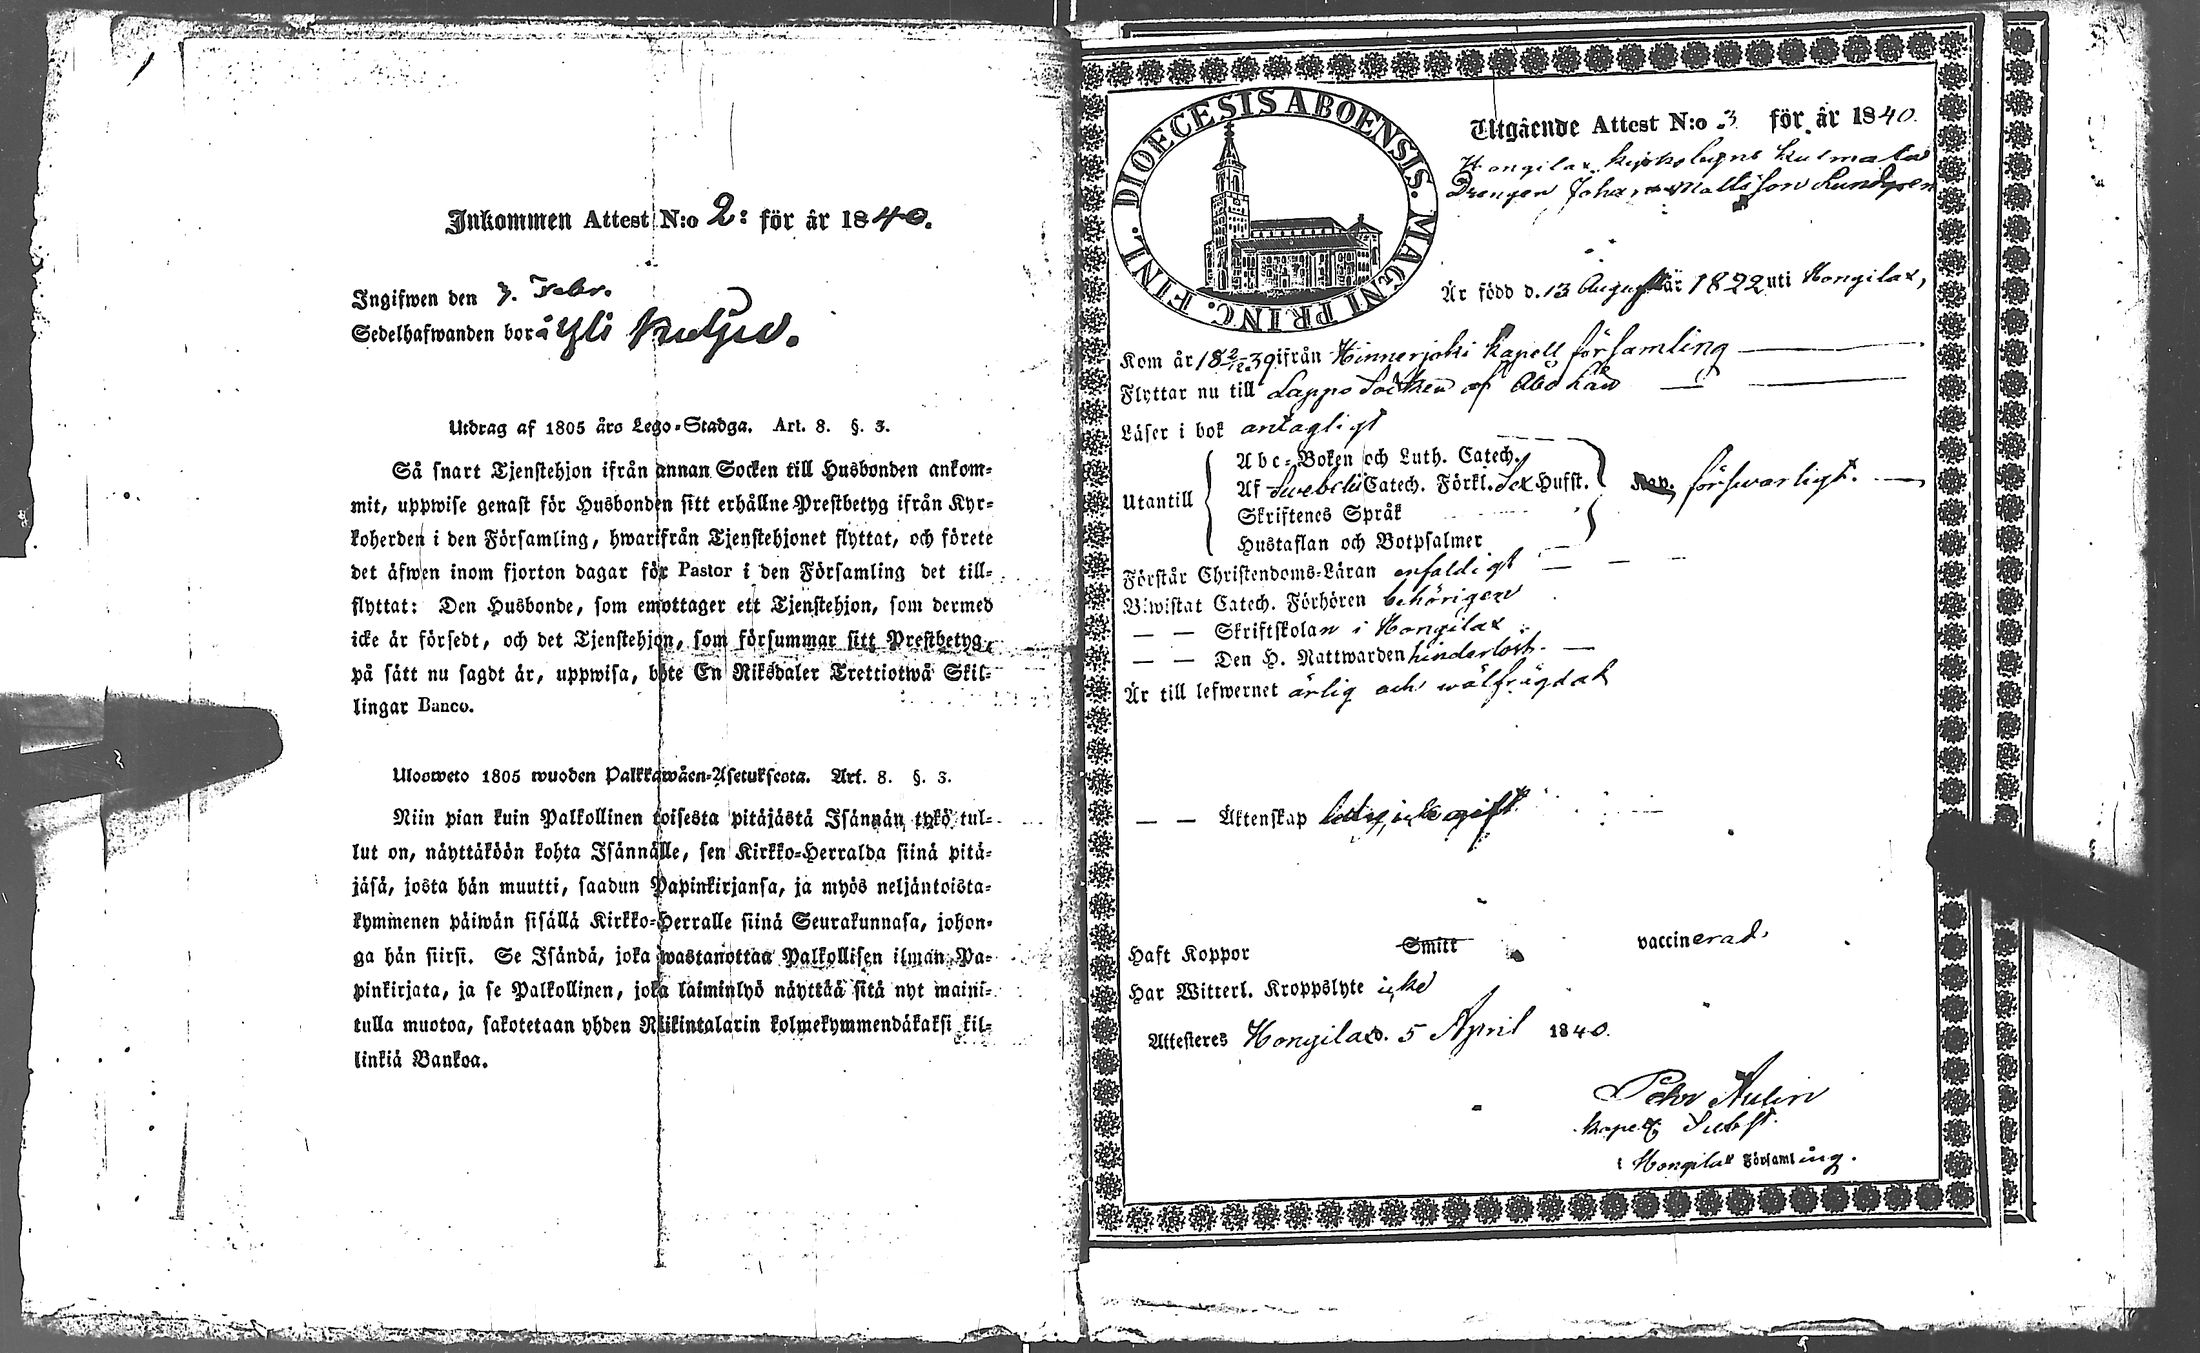 Inkommen Attest N:o 2: för år 1840.
Ingifwen den 7. Febr.
Sedelhafwanden bor å Yli
Utdrag af 1805 års Lego-Stadga. Art. 8. §. 3.
Så snart Tjenstehjon ifrån annan Socken till Husbonden ankom-
mit, uppwise genast för Husbonden sitt erhållne Prestbetyg ifrån Kyr-
koherden i den Församling, hwarifrån Tjenstehjonet flyttat, och förete
det äfwen inom fjorton dagar för Pastor i den Församling det till-
flyttat: Den Husbonde, som emottager ett Tjenstehjon, som dermed
icke är försedt, och det Tjenstehjon, som försummar sitt Prestbetyg,
på sätt nu sagdt är, uppwisa, böte En Riksdaler Trettiotwå Skil-
lingar Banco.
Ulosweto 1805 wuoden Palkkawäen-Asetuksesta. Art. 8. §. 3.
Niin pian kuin Palkollinen toisesta pitäjästä Isännän tykö tul-
lut on, näyttäköön kohta Isännälle, sen Kirkko-Herralda siinä pitä-
jäsä, josta hän muutti, saadun Papinkirjansa, ja myös neljäntoista-
kymmenen päiwän sisällä Kirkko-Herralle siinä Seurakunnasa, johon-
ga hän siirsi. Se Isändä, joka wastanottaa Palkollisen ilman Pa-
pinkirjata, ja se Palkollinen, joka laiminlyö näyttää sitä nyt maini-
tulla muotoa, sakotetaan yhden Riikintalarin kolmekymmendäkaksi kil-
linkiä Bankoa.
DIOECESIS ABOENSIS. MAGNI PRINC. FINL.
Utgående Attest N:o 3 för år 1840.
Hongilax kyrkobyns
Drengen Johan Mattsson Lundgren
Är född d. 13 Augusti år 1822 uti Hongilax,
Kom år 18 2/12 39 ifrån Hinnerjoki Kapell församling
Flyttar nu till Lappo Socken af Åbo Län
Läser i bok antagligt
Utantill
Abc-Boken och Luth. Catech.
Af Svebelii Catech. Förkl. Sex Hufst.
försvarligt.
Skriftenes Språk
Hustaflan och Botpsalmer
Förstår Christendoms-Läran enfaldigt
Biwistat Catech. Förhören behörigen
— — Skriftskolan i Hongilax
— — Den H. Nattwarden hinderlöst.
Är till lefwernet ärlig och wälfrägdad
— — Äktenskap ledig icke gift
Haft Koppor Smitt vaccinerad.
Har Witterl. Kroppslyte icke
Attesteres Hongilax d. 5 April 1840.
Pehr Aulin
Kapell Subst.
i Hongilax Församling.